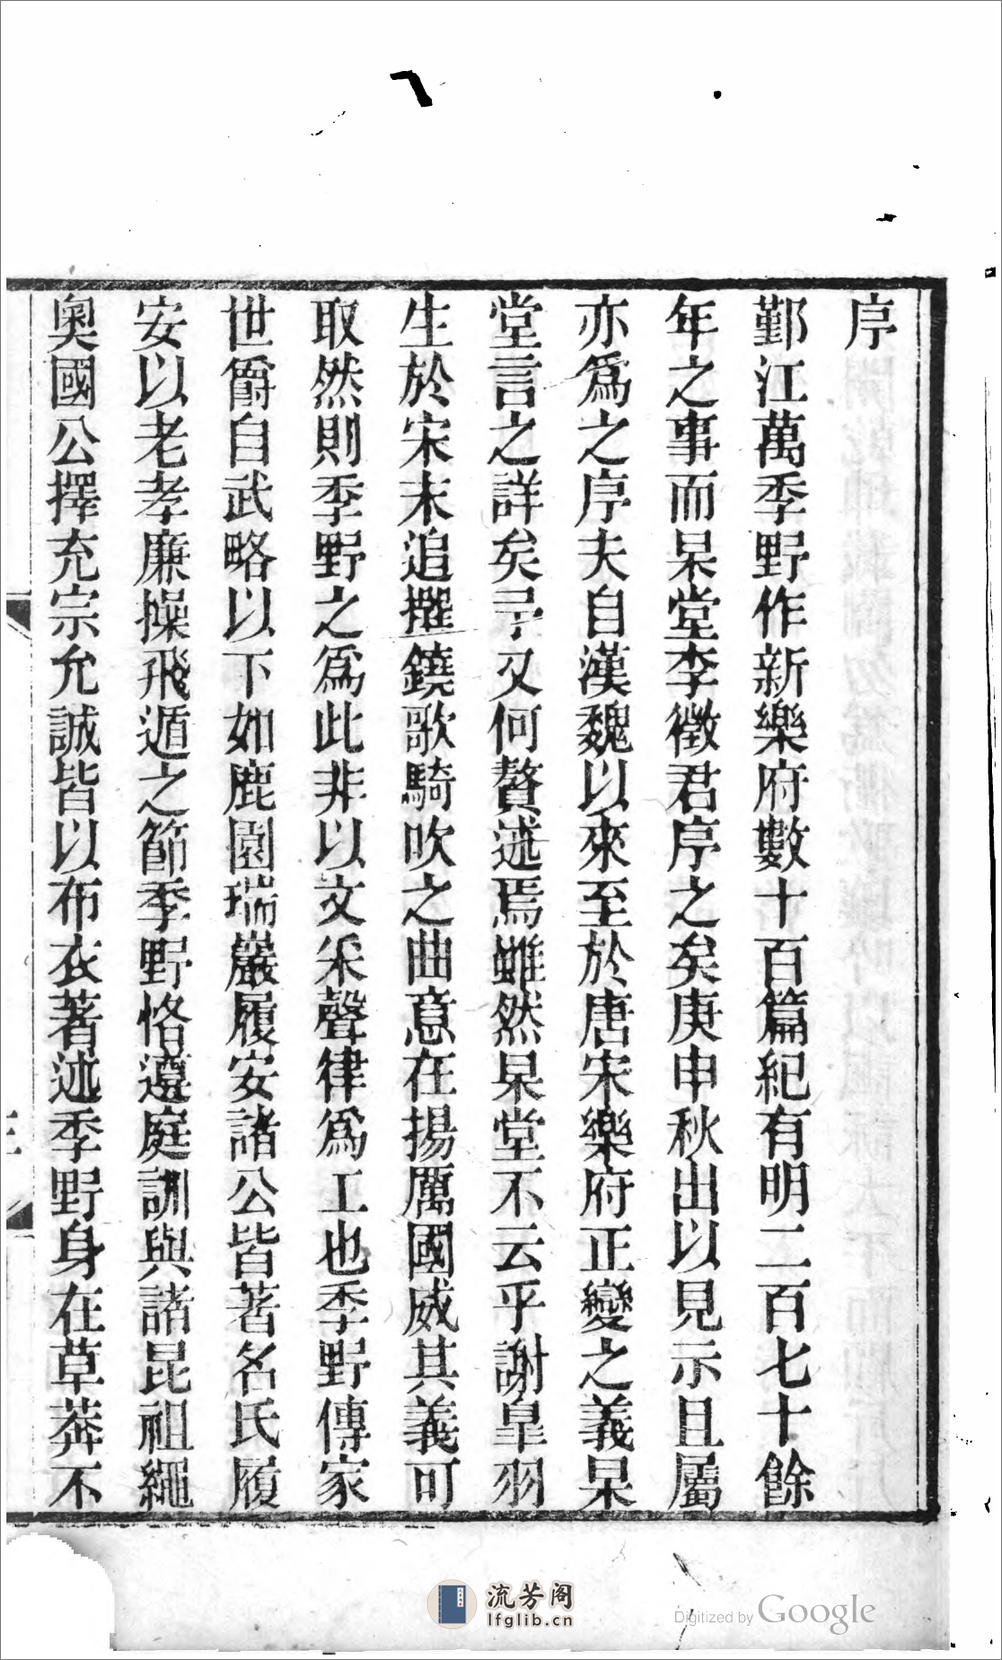 序
鄞江萬季野作新樂府數十百篇紀有明二百七十餘
年之事而杲堂李徵君序之矣庚申秋出以見示且屬
亦爲之序夫自漢魏以來至於唐宋樂府正變之義杲
堂言之詳矣予又何贅述焉雖然杲堂不云乎謝皐羽
生於宋末追撰鐃歌騎吹之曲意在揚厲國威其義可
取然則季野之爲此非以文采聲律爲工也季野傳家
世爵自武略以下如鹿園瑞巖履安諸公皆著名氏履
安以老孝廉操飛遁之節季野恪遵庭訓與諸昆祖繩
奥國公擇充宗允誠皆以布衣著述季野身在草莽不
流芳阁
lfglib.cn
Digitized by Google